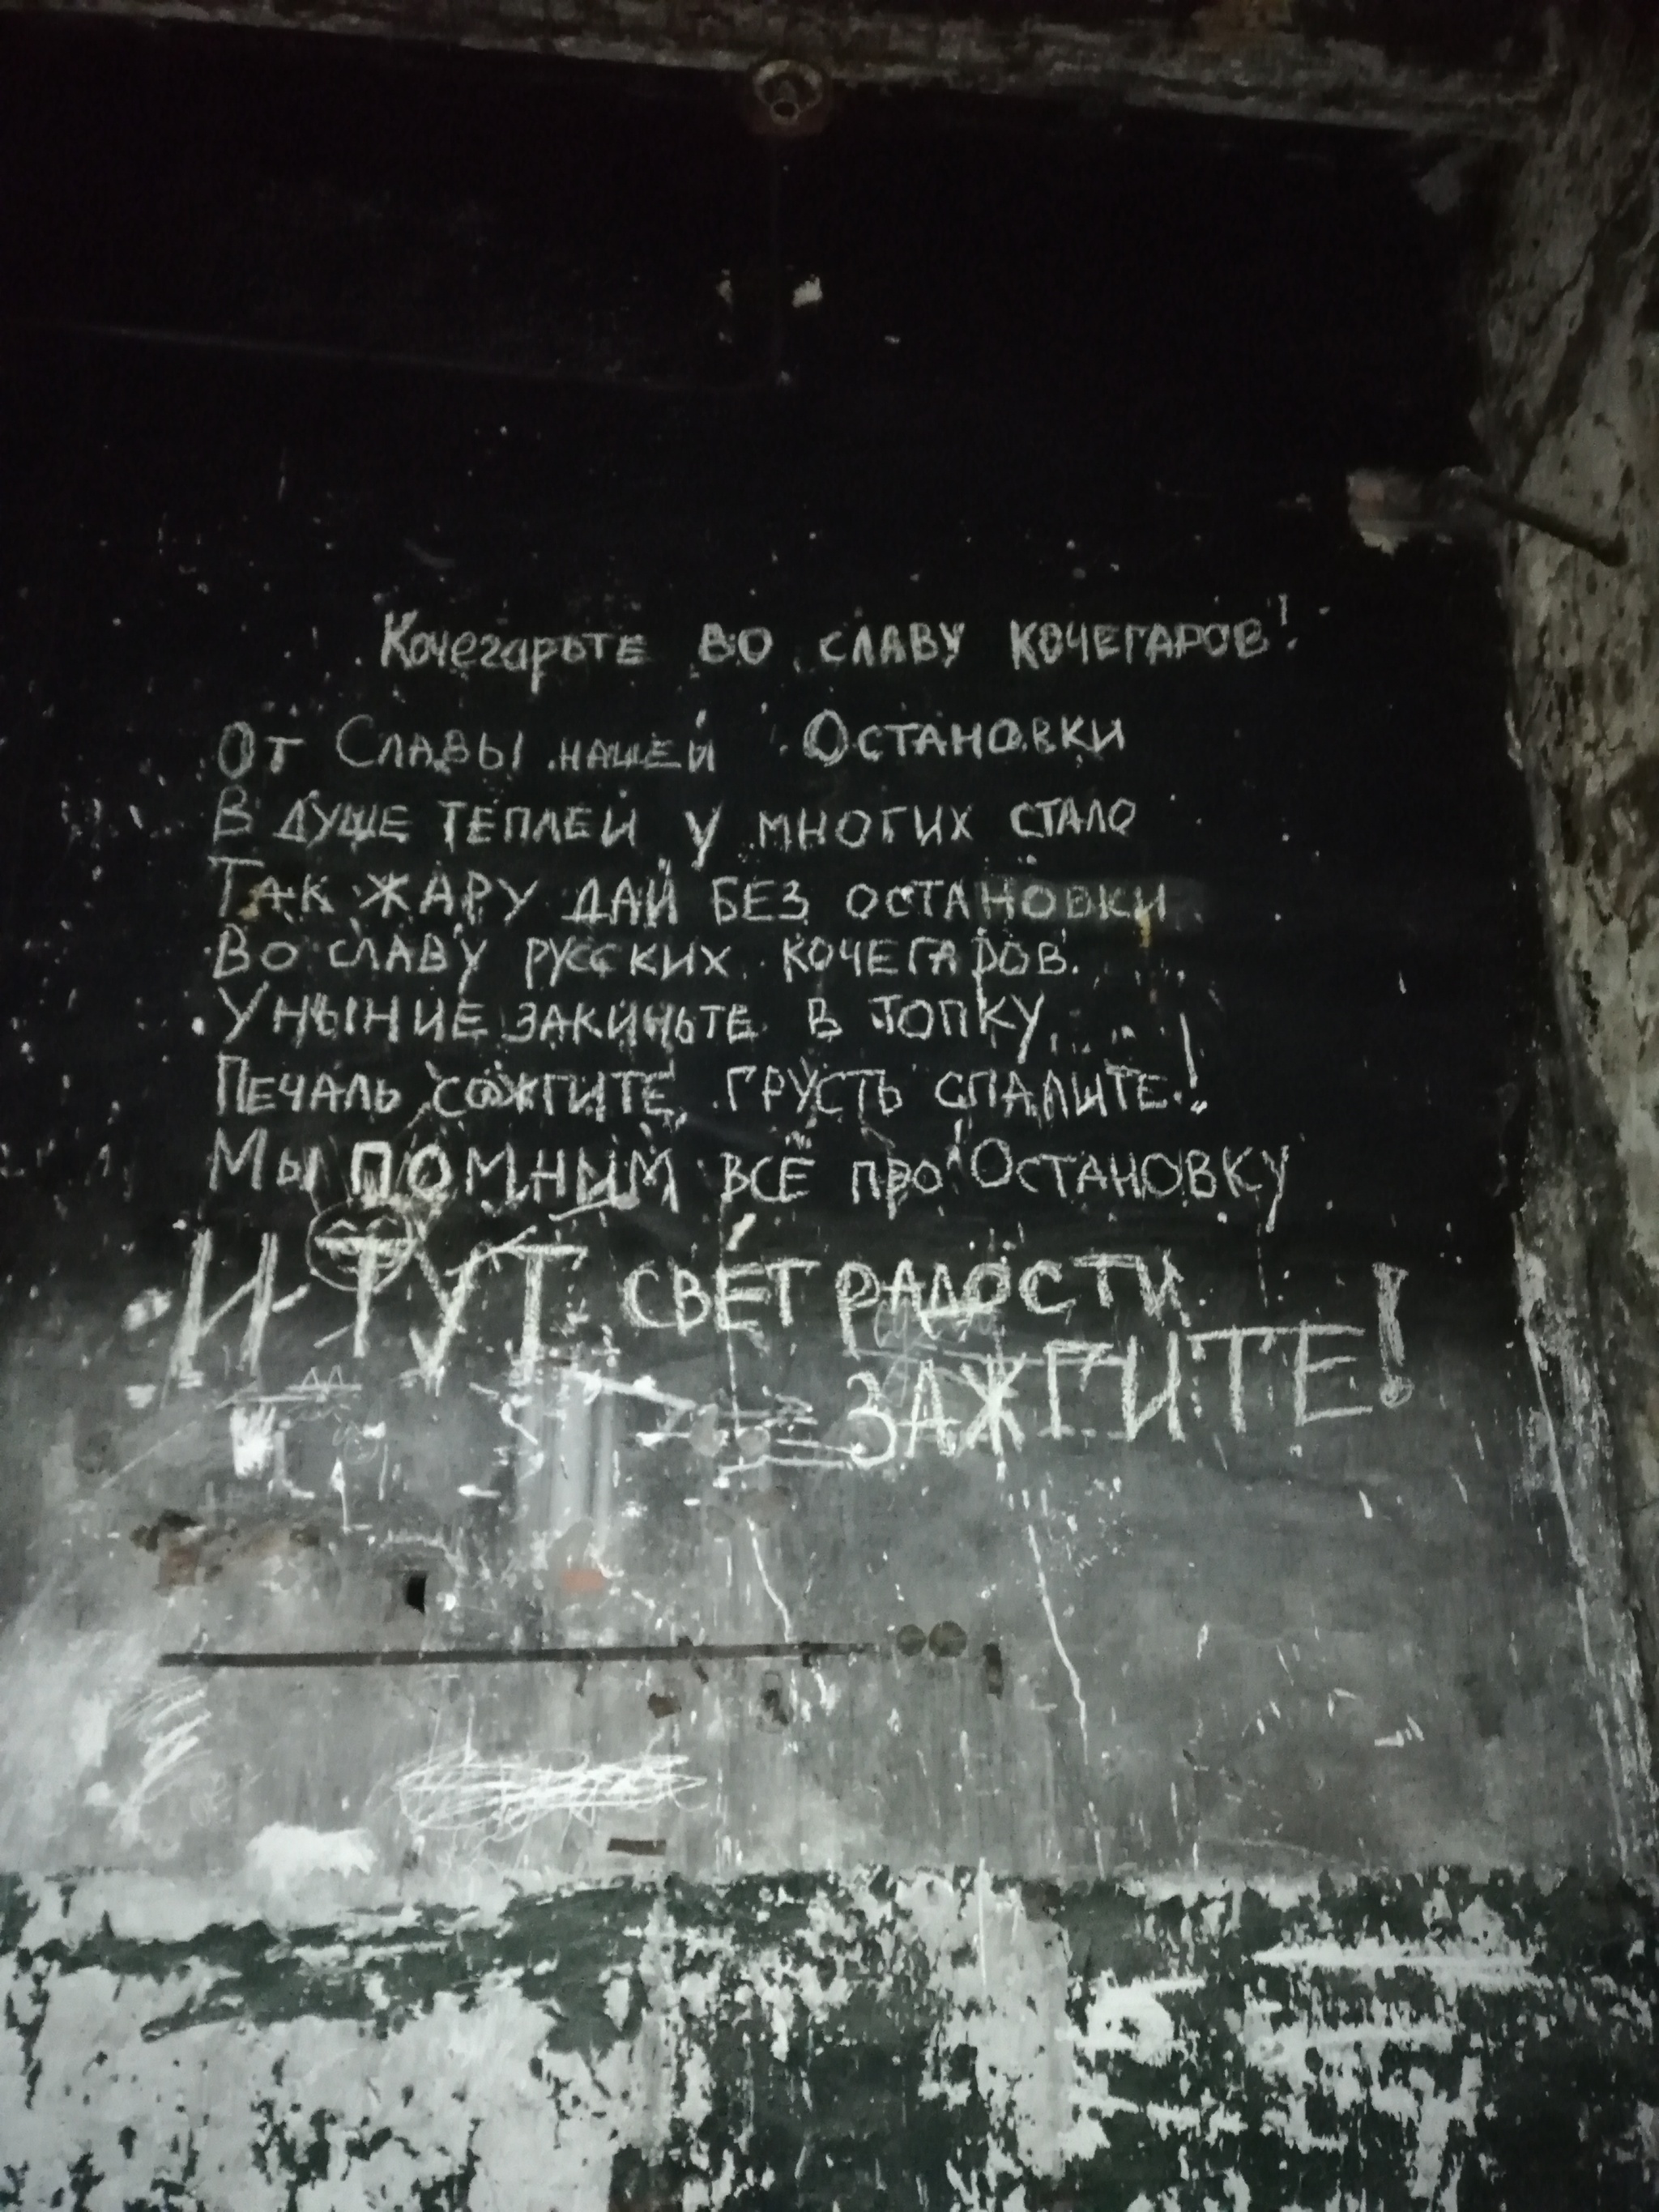 Кочегарьте во славу кочегаров!
От Славы нашей Остановки
В душе теплей у многих стало
Так жару дай без остановки
Во славу русских кочегаров.
Уныние закиньте в топку
Печаль сожгите, грусть спалите!
Мы помним всё про Остановку
И ТУТ СВЕТ РАДОСТИ
ЗАЖГИТЕ!